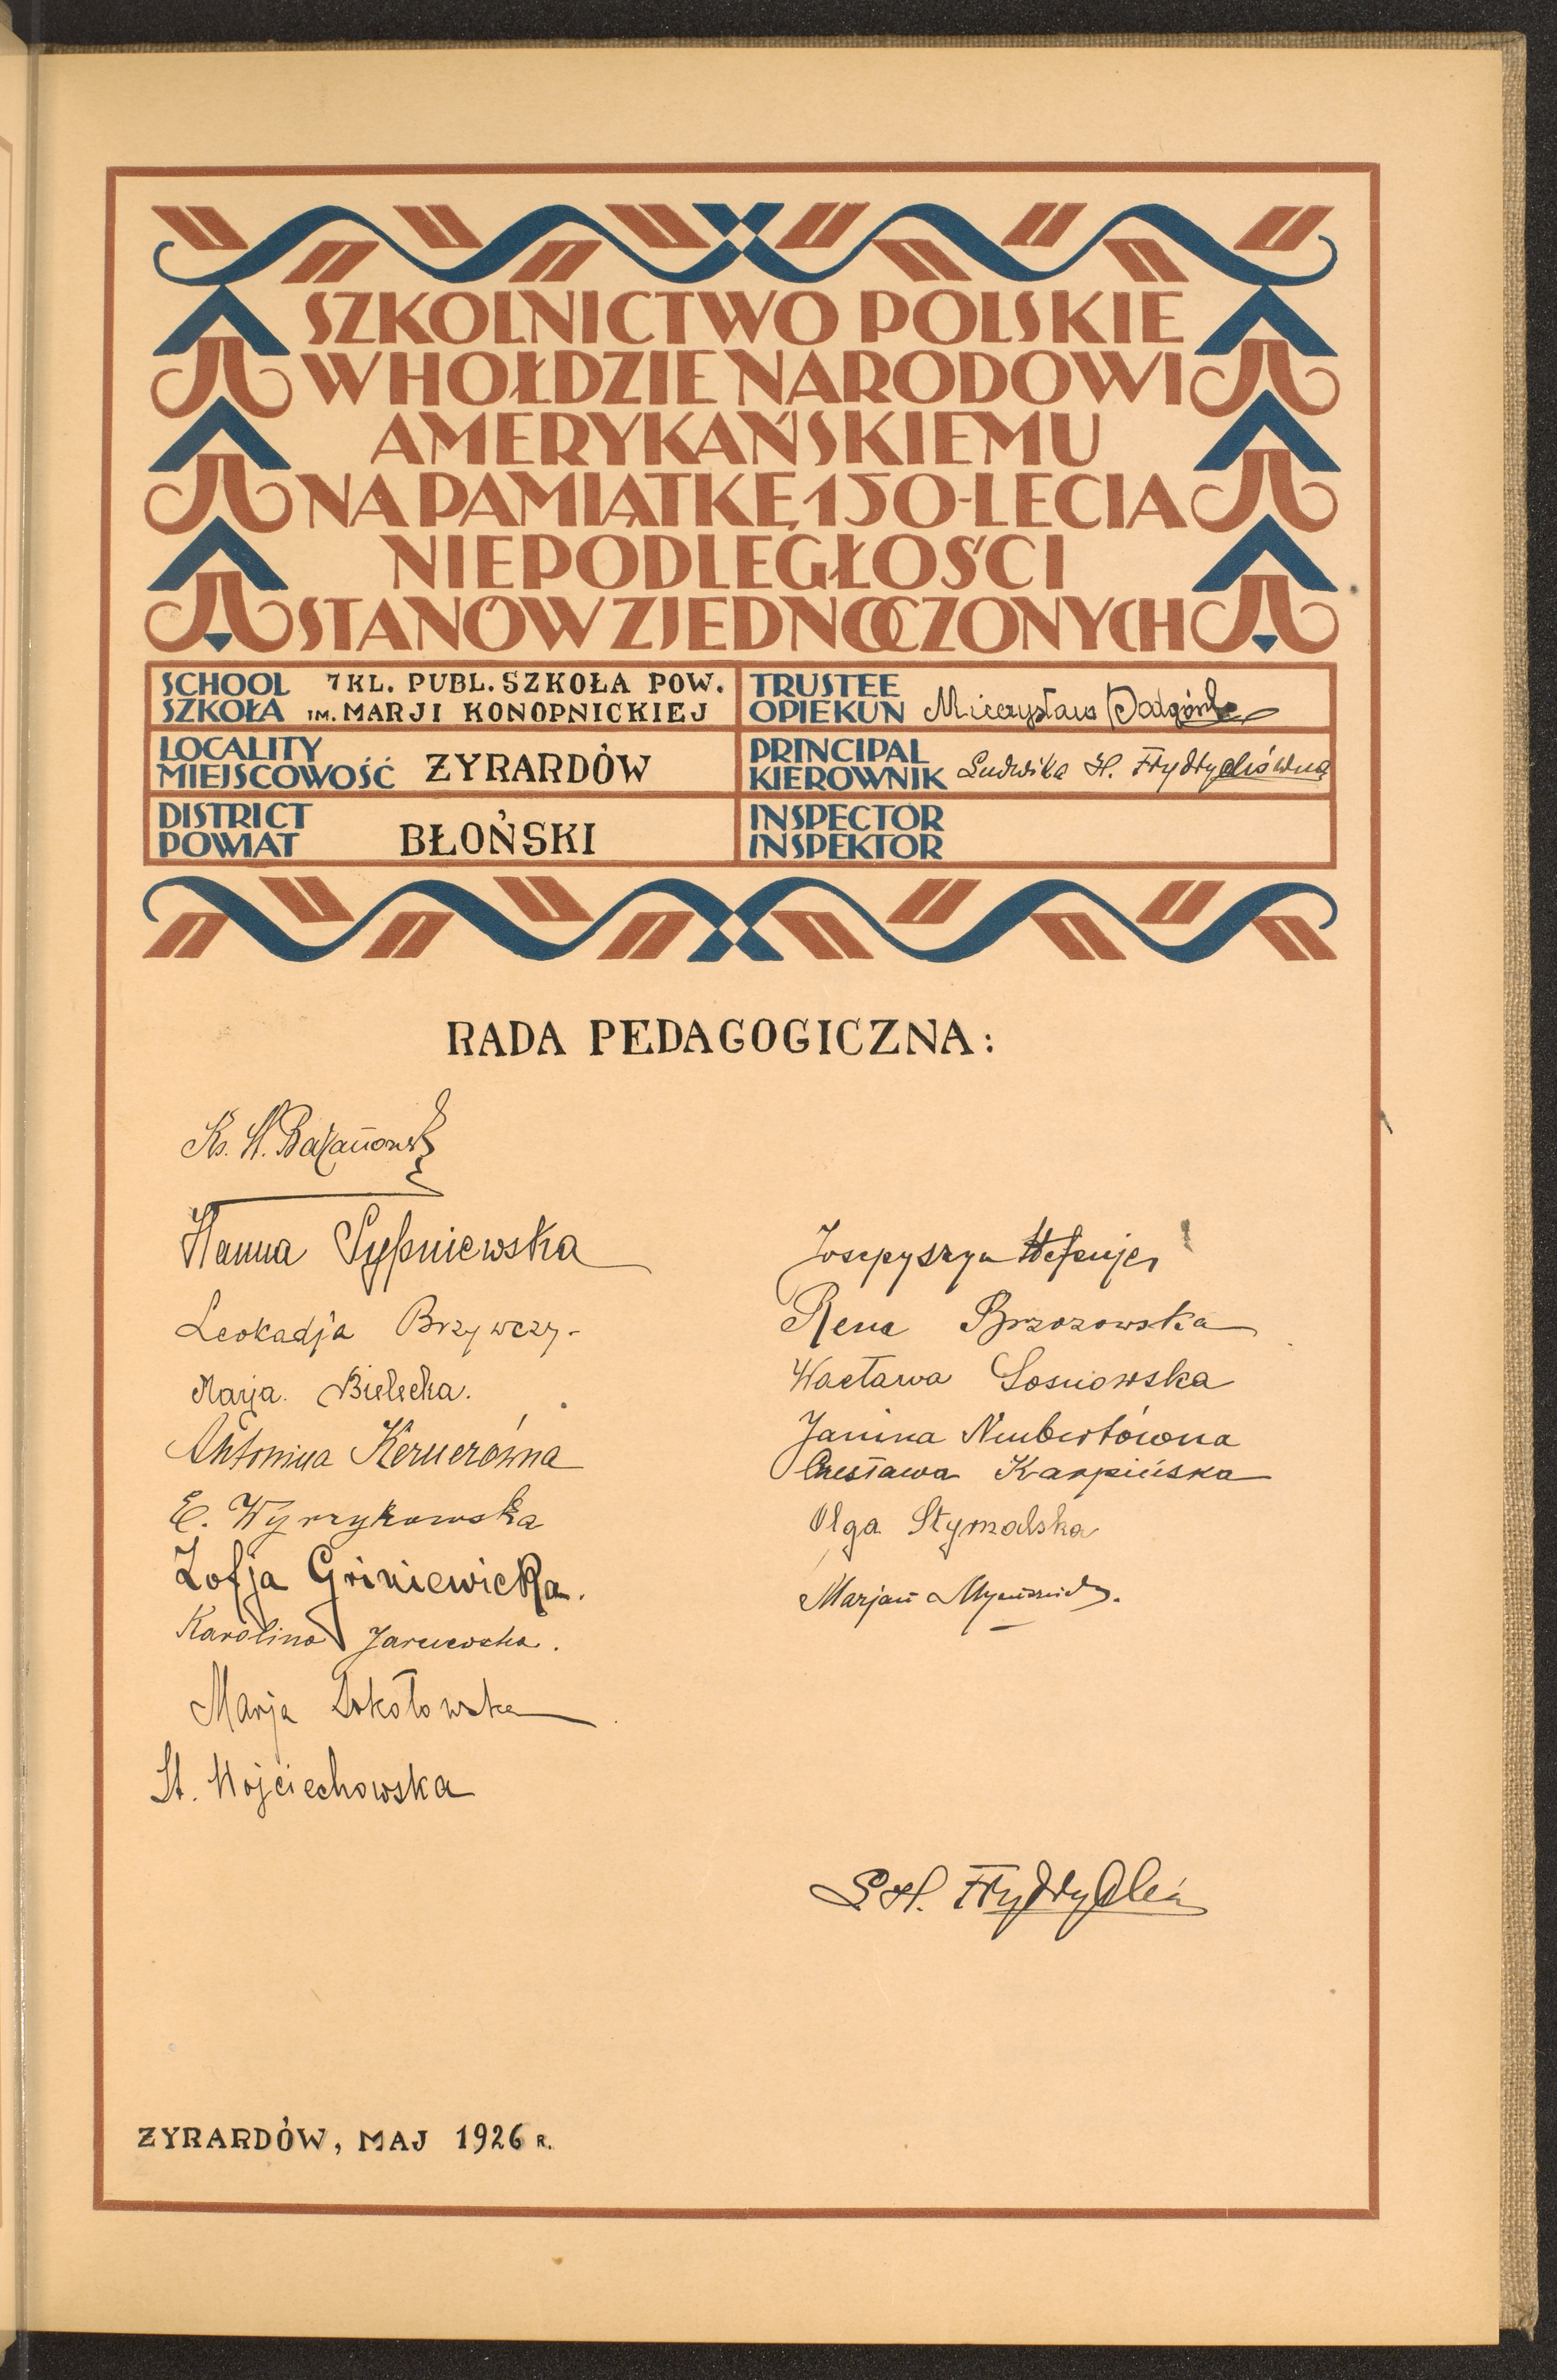 SZKOLNICTWO POLSKIE
W HOŁDZIE NARODOWI
AMERYKAŃSKIEMU
NA PAMIĄTKĘ 150-LECIA
NIEPODLEGŁOŚCI
STANÓW ZJEDNOCZONYCH
SCHOOL 7 KL. PUBL. SZKOŁA POW.
SZKOŁA IM. MARJI KONOPNICKIEJ
TRUSTEE
OPIEKUN Mieczysław
LOCALITY
MIEJSCOWOŚĆ ŻYRARDÓW
PRINCIPAL
KIEROWNIK Ludwika H. Frydrychówna
DISTRICT
POWIAT BŁOŃSKI
INSPECTOR
INSPEKTOR
RADA PEDAGOGICZNA:
Ks. St.
Hanna Sypniewska
Leokadja Brzywczy-
Marja Bielecka.
Antonina Kernerówna
E. Wyrzykowska
Zofja Griniewicka.
Karolina
Marja Sokołowska
St. Wojciechowska
Rena Brzozowska
Wacława Sosnowska
Janina Neubertówna
Czesława Karpińska
Olga
Marjan
ŻYRARDÓW, MAJ 1926 R.